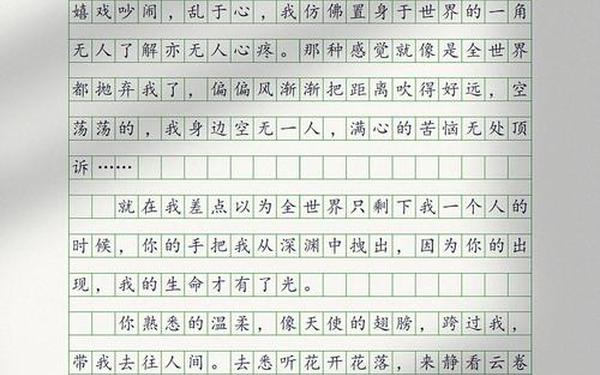 嬉戏吵闹，乱于心，我仿佛置身于世界的一角
无人了解亦无人心疼。那种感觉就像是全世界
都抛弃我了，偏偏风渐渐把距离吹得好远，空
荡荡的，我身边空无一人，满心的苦恼无处顶
诉……
就在我差点以为全世界只剩下我一个人的
时候，你的手把我从深渊中拽出，因为你的出
现，我的生命才有了光。
你熟悉的温柔，像天使的翅膀，跨过我，
带我去往人间。去悉听花开花落，来静看云卷